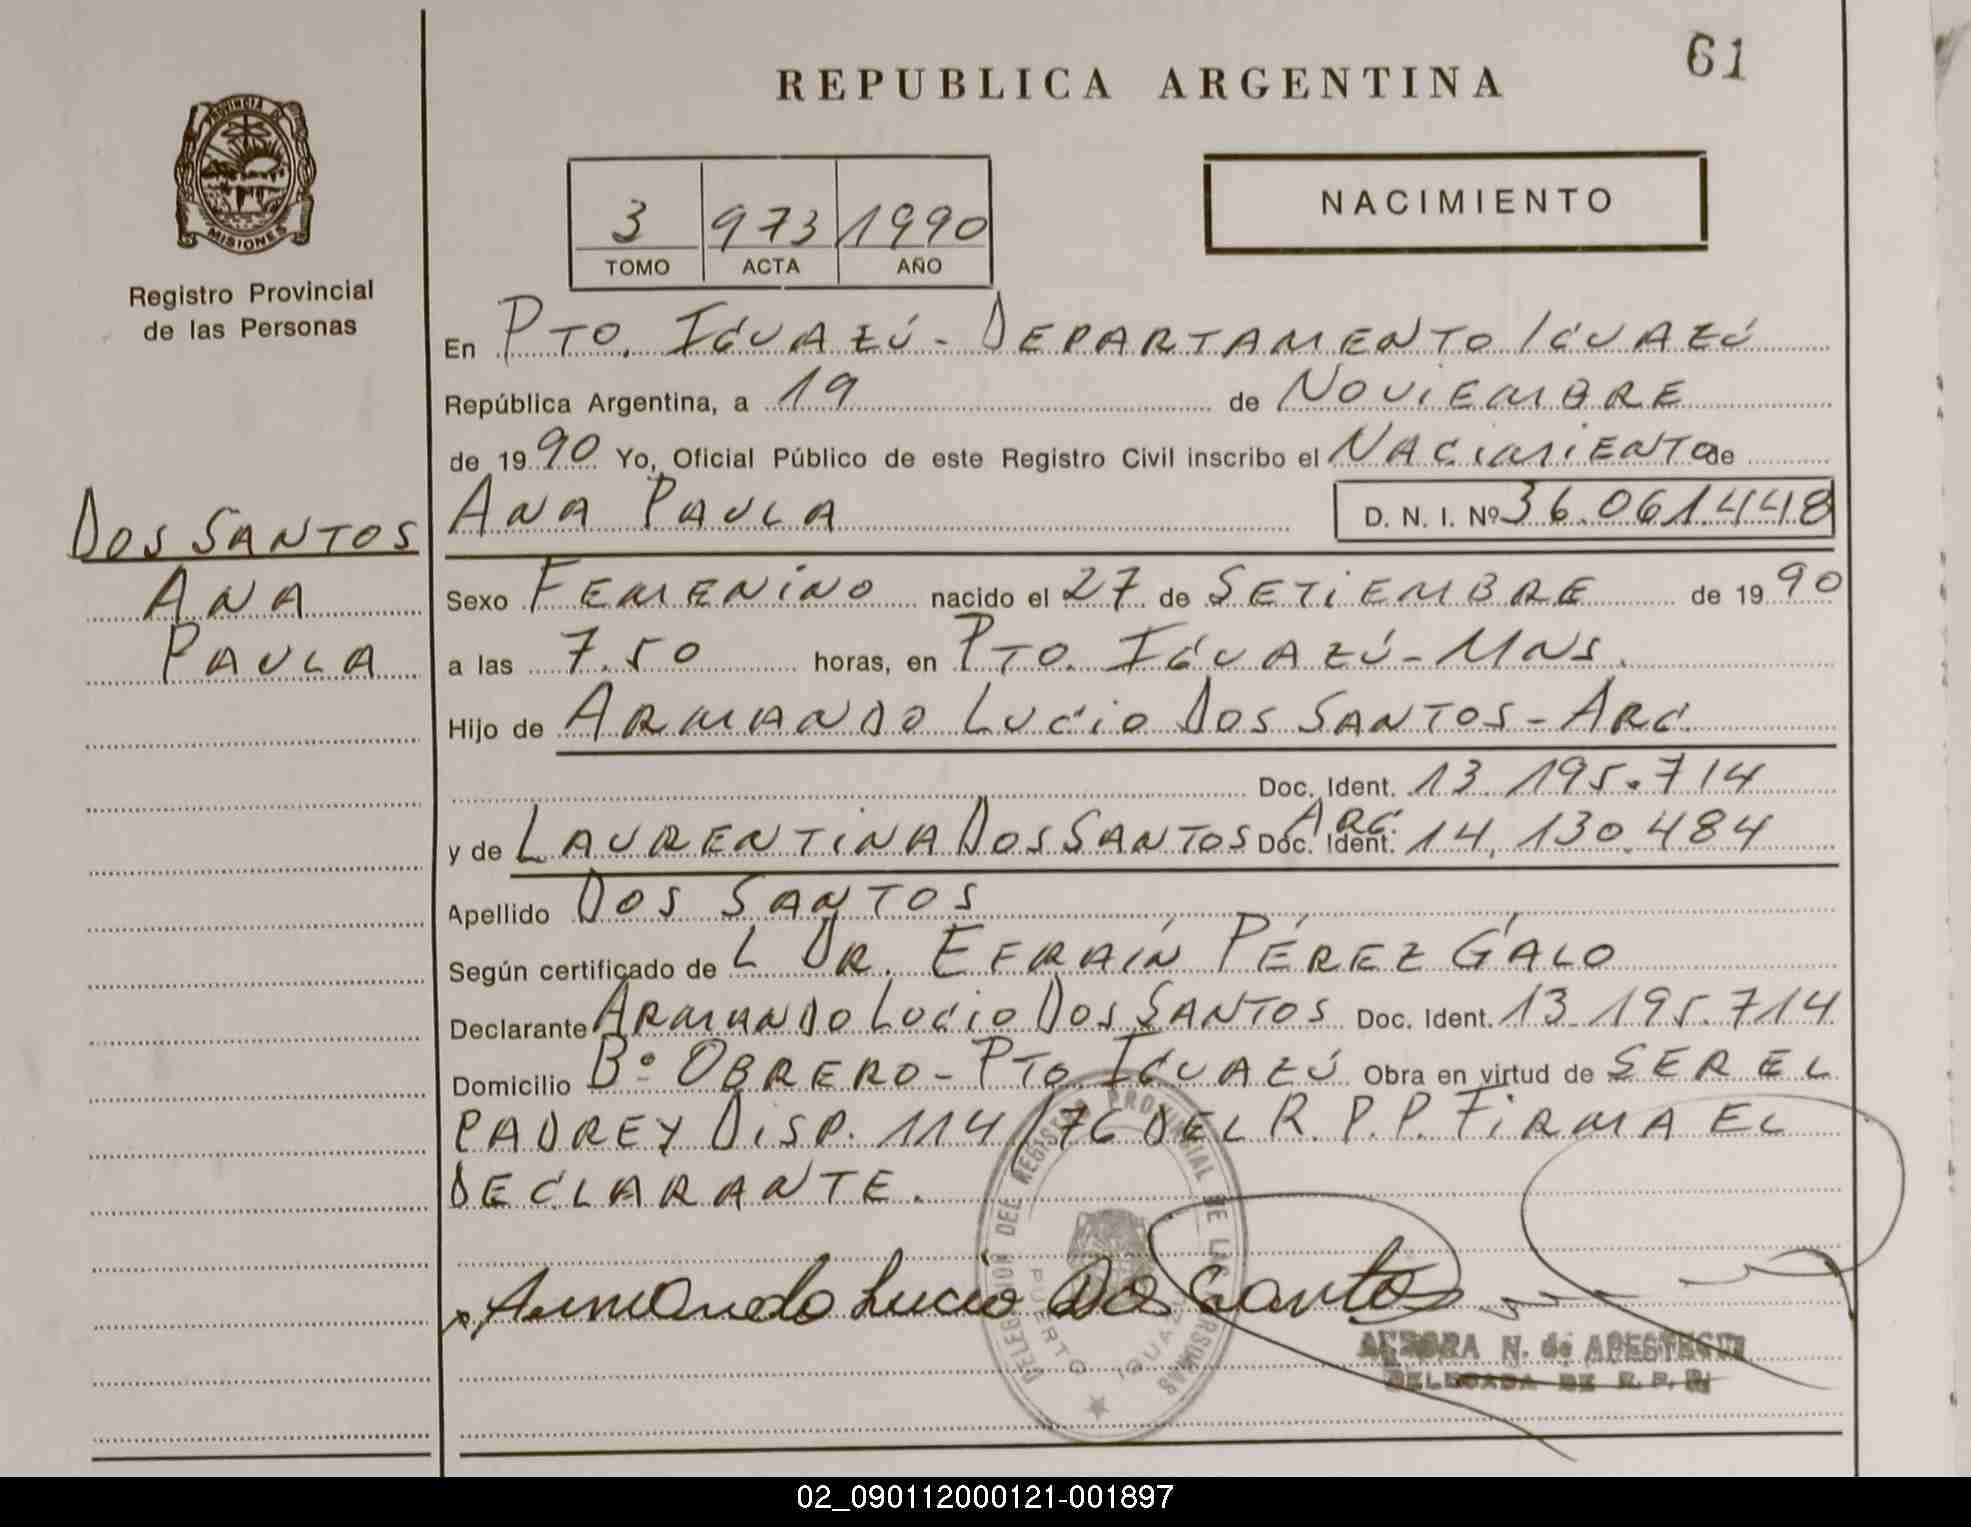 61
REPUBLICA ARGENTINA
PROVINCIA DE
MISIONES
Registro Provincial
de las Personas
3 973 1990
TOMO ACTA AÑO
NACIMIENTO
En PTO. IGUAZÚ - DEPARTAMENTO IGUAZÚ
República Argentina, a 19 de NOVIEMBRE
de 1990 Yo, Oficial Público de este Registro Civil inscribo el NACIMIENTO de
ANA PAULA D. N. I. Nº 36.061.448
DOS SANTOS
ANA
PAULA
Sexo FEMENINO nacido el 27 de SETIEMBRE de 1990
a las 7.50 horas, en PTO. IGUAZÚ - MNS.
Hijo de ARMANDO LUCIO DOS SANTOS - ARG.
Doc. Ident. 13.195.714
y de LAURENTINA DOS SANTOS ARG. Doc. Ident. 14.130.484
Apellido DOS SANTOS
Según certificado de L DR. EFRAÍN PÉREZ GALO
Declarante ARMANDO LUCIO DOS SANTOS Doc. Ident. 13.195.714
Domicilio Bº OBRERO - PTO IGUAZÚ Obra en virtud de SER EL
PADRE Y DISP. 114/76 DEL R. P. P. FIRMA EL
DECLARANTE.
Armando Lucio Dos Santos
DEL REGISTRO PROVINCIAL DE LAS PERSONAS
PUERTO IGUAZU
N. de APESTEGUI
DELEGADA DE R. P. P.
02_090112000121-001897